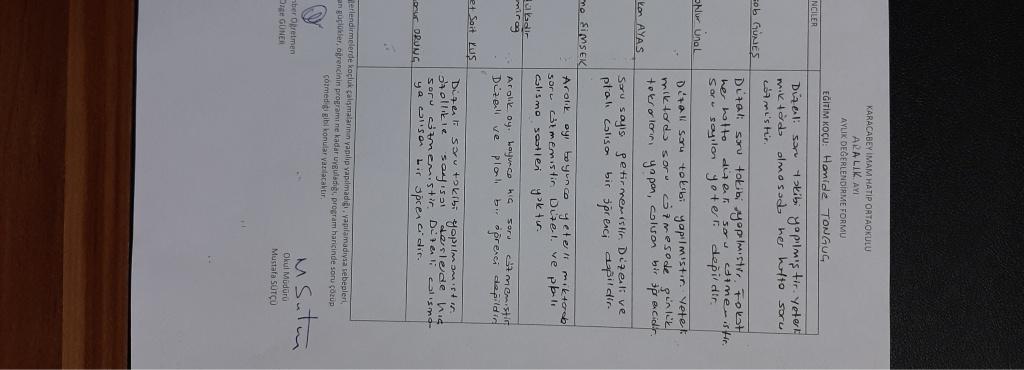 KARACABEY İMAM HATİP ORTAOKULU
ARALIK AYI
AYLIK DEĞERLENDİRME FORMU
NCİLER
EĞİTİM KOÇU: Hamide TONGUÇ
GÜNEŞ
Düzenli soru takibi yapılmıştır. Yeterli
miktarda olmasada her hafta soru
çözmüştür.
Onur Ünal
Düzenli soru takibi yapılmıştır. Fakat
her hafta düzenli soru çözmemiştir.
soru sayıları yeterli değildir.
kan AYAS
Düzenli soru takibi yapılmıştır. Yeterli
miktarda soru çözmesede günlük
tekrarlarını yapan, çalışan bir öğrencidir.
ma ŞİMŞEK
Soru sayısı getirmemiştir. Düzenli ve
planlı çalışan bir öğrenci değildir.
Aralık ayı boyunca yeterli miktarda
soru çözmemiştir. Düzenli ve planlı
çalışma saatleri yoktur.
et Sait KUŞ
Aralık ayı boyunca hiç soru çözmemiştir
Düzenli ve planlı bir öğrenci değildir
ORUNÇ
Düzenli soru takibi yapılmamıştır.
özellikle sayısal derslerde hiç
soru çözmemiştir. Düzenli çalışma-
ya çalışan bir öğrencidir.
ğerlendirmelerde koçluk çalışmalarının yapılıp yapılmadığı, yapılamadıysa sebepleri,
an güçlükler, öğrencinin programı ne kadar uyguladığı, program haricinde soru çözüp
çözmediği gibi konular yazılacaktır.
ber Öğretmen
Özge GÜNER
M Sütçü
Okul Müdürü
Mustafa SÜTÇÜ